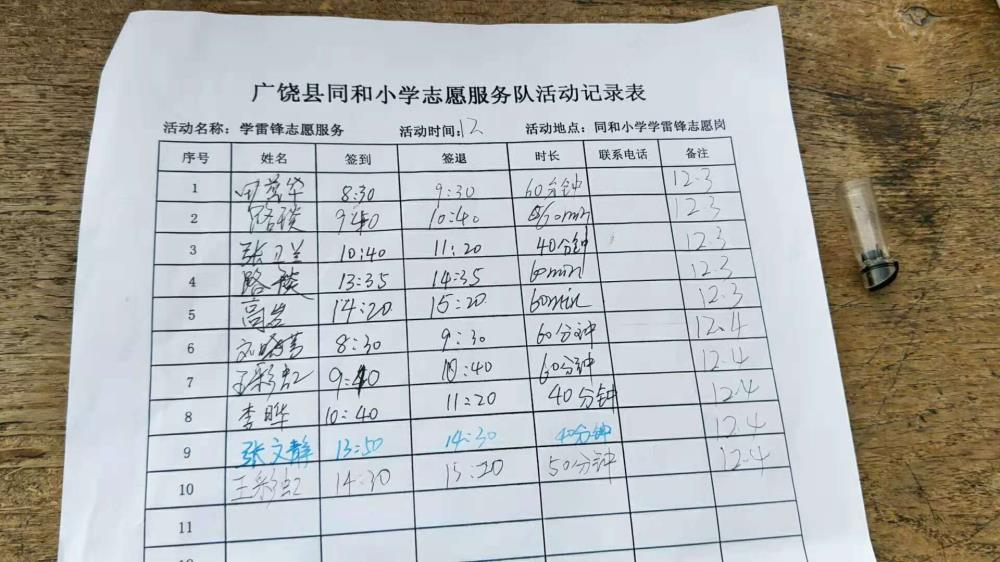 广饶县同和小学志愿服务队活动记录表
活动名称：学雷锋志愿服务 活动时间：12 活动地点：同和小学学雷锋志愿岗
序号 姓名 签到 签退 时长 联系电话 备注
1 8:30 9:30 60分钟 12.3
2 路锬 9:40 10:40 60min 12.3
3 张卫兰 10:40 11:20 40分钟 12.3
4 路锬 13:35 14:35 60min 12.3
5 高岩 14:20 15:20 60min 12.3
6 8:30 9:30 60分钟 12.4
7 王彩虹 9:40 10:40 60分钟 12.4
8 李晔 10:40 11:20 40分钟 12.4
9 张文静 13:50 14:30 40分钟 12.4
10 王彩虹 14:30 15:20 50分钟 12.4
11